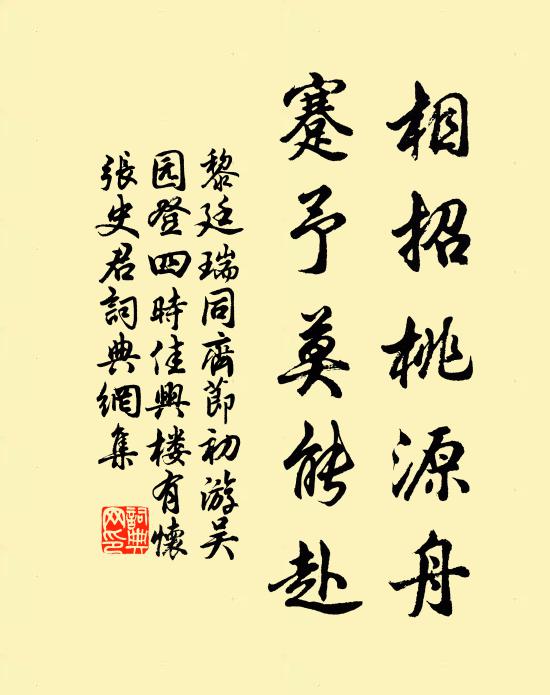 相招桃源舟
蹇予莫能赴
黎廷瑞同齊節初游吴
园登四時佳興楼有懷
張史君詞典網集
詞典
网印